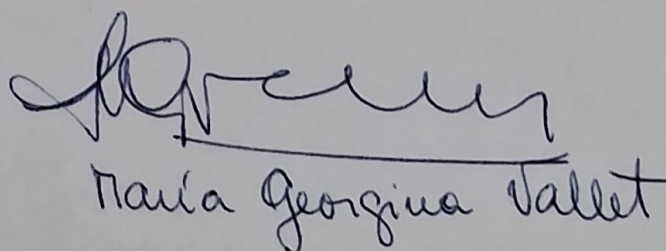 María Georgina Vallet